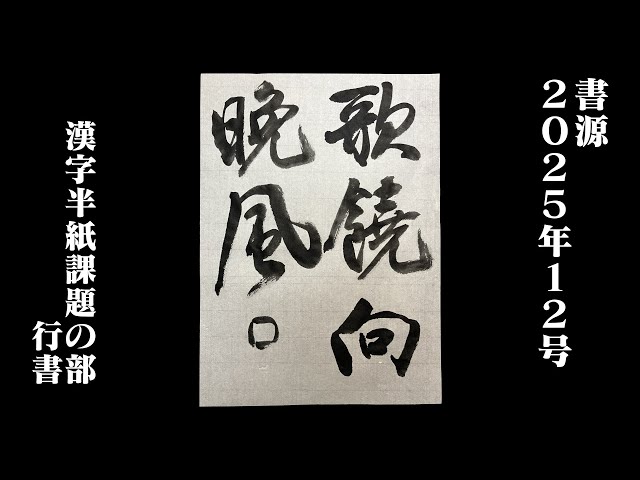 書源
２０２５年１２号
歌饒向
晩風。
漢字半紙課題の部
行書